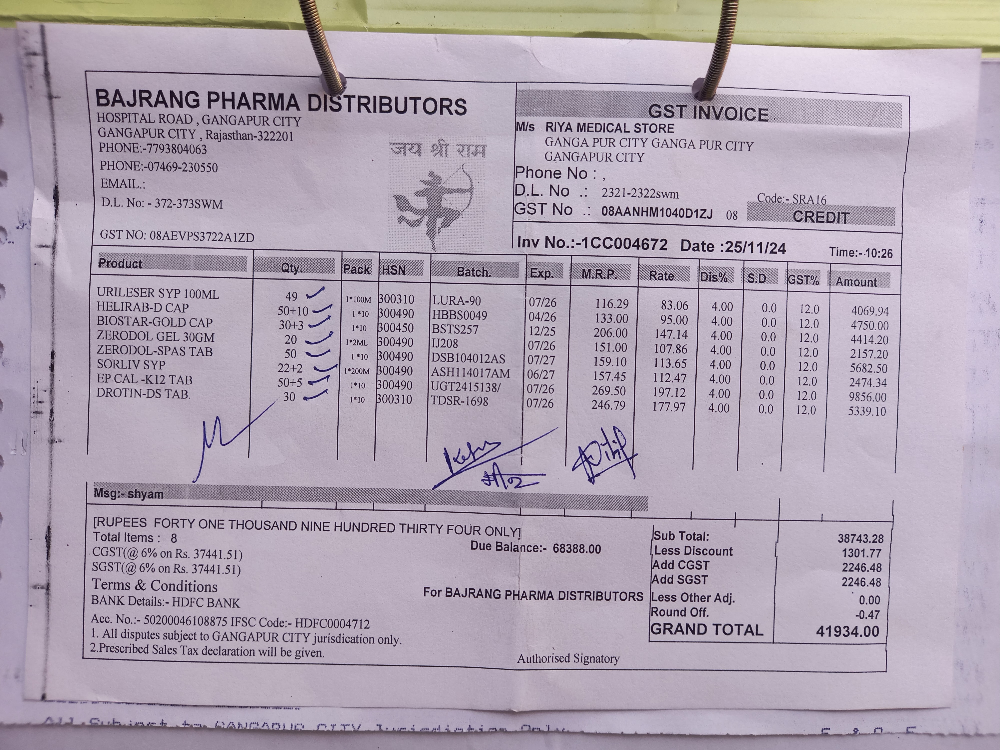 BAJRANG PHARMA DISTRIBUTORS
HOSPITAL ROAD , GANGAPUR CITY
GANGAPUR CITY , Rajasthan-322201
PHONE:-7793804063
PHONE:-07469-230550
EMAIL.:
D.L. No: - 372-373SWM
GST NO: 08AEVPS3722A1ZD
जय श्री राम
GST INVOICE
M/s RIYA MEDICAL STORE
GANGA PUR CITY GANGA PUR CITY
GANGAPUR CITY
Phone No : ,
D.L. No .: 2321-2322swm
Code:- SRA16
GST No .: 08AANHM1040D1ZJ 08 CREDIT
Inv No.:-1CC004672 Date :25/11/24 Time:- 10:26
Product Qty. Pack HSN Batch. Exp. M.R.P. Rate Dis% S.D GST% Amount
URILESER SYP 100ML 49 1*100M 300310 LURA-90 07/26 116.29 83.06 4.00 0.0 12.0 4069.94
HELIRAB-D CAP 50+10 1*10 300490 HBBS0049 04/26 133.00 95.00 4.00 0.0 12.0 4750.00
BIOSTAR-GOLD CAP 30+3 1*10 300450 BSTS257 12/25 206.00 147.14 4.00 0.0 12.0 4414.20
ZERODOL GEL 30GM 20 1*2ML 300490 IJ208 07/26 151.00 107.86 4.00 0.0 12.0 2157.20
ZERODOL-SPAS TAB 50 1*10 300490 DSB104012AS 07/27 159.10 113.65 4.00 0.0 12.0 5682.50
SORLIV SYP 22+2 1*200M 300490 ASH114017AM 06/27 157.45 112.47 4.00 0.0 12.0 2474.34
EP CAL -K12 TAB 50+5 1*10 300490 UGT2415138/ 07/26 269.50 197.12 4.00 0.0 12.0 9856.00
DROTIN-DS TAB 30 1*10 300310 TDSR-1698 07/26 246.79 177.97 4.00 0.0 12.0 5339.10
Msg:- shyam
[RUPEES FORTY ONE THOUSAND NINE HUNDRED THIRTY FOUR ONLY]
Total Items : 8
Due Balance:- 68388.00
CGST(@ 6% on Rs. 37441.51)
SGST(@ 6% on Rs. 37441.51)
Terms & Conditions
BANK Details:- HDFC BANK
For BAJRANG PHARMA DISTRIBUTORS
Acc. No.:- 50200046108875 IFSC Code:- HDFC0004712
1. All disputes subject to GANGAPUR CITY jurisdication only.
2.Prescribed Sales Tax declaration will be given.
Authorised Signatory
Sub Total: 38743.28
Less Discount 1301.77
Add CGST 2246.48
Add SGST 2246.48
Less Other Adj. 0.00
Round Off. -0.47
GRAND TOTAL 41934.00